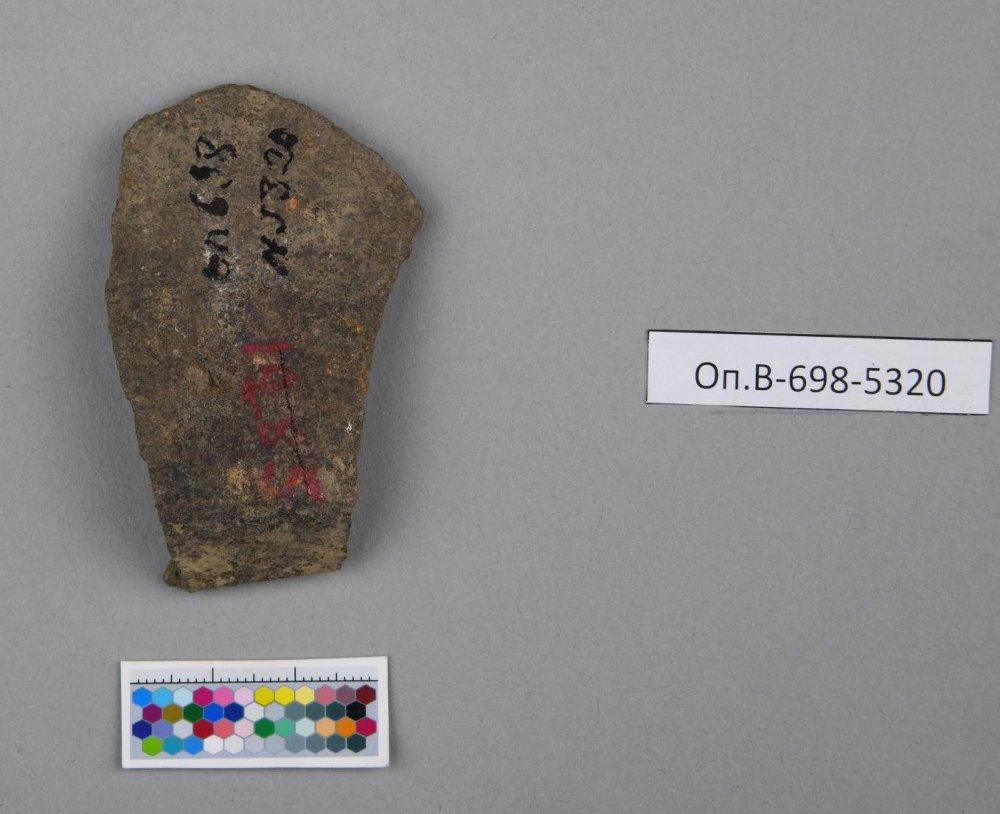 оп 698
№5320
Оп.В-698-5320